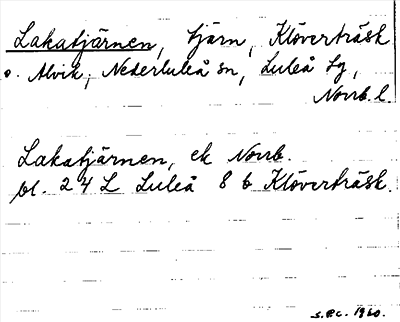 Lakatjärnen, tjärn, Klöverträsk
o. Alvik, Nederluleå sn, Luleå tg,
Norrb. l.
Lakatjärnen, ek Norrb.
bl. 24 L Luleå 8 b Klöverträsk.
S.P.C. 1960.